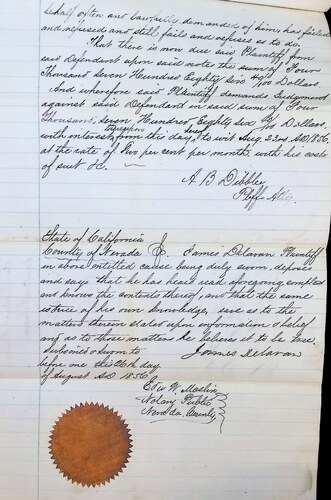 behalf often and lawfully demanded of him, has failed
and refused and still fails and refuses so to do.
That there is now due said Plaintiff from
said Defendant upon said note the sum of Four
Thousand Seven Hundred Eighty Six /100 Dollars.
And wherefore said Plaintiff demands Judgment
against said Defendant in said sum of Four
Thousand, Seven Hundred, Eighty Six /100 Dollars,
with interest thereon from this day, to wit Aug. 22nd AD 1856,
at the rate of Two per cent per month with his costs
of suit &c.
A B Dibble,
Plff Atty.
State of California
County of Nevada James Delavan Plaintiff
in above entitled cause being duly sworn, deposes
and says that he has heard read aforegoing complaint
and knows the contents thereof, and that the same
is true of his own knowledge, save as to the
matters therein stated upon information & belief
and as to those matters he believes it to be true.
Subscribed & sworn to James Delavan
before me this 26th day
of August AD 1856
Edw W. Maslin
Notary Public
Nevada County